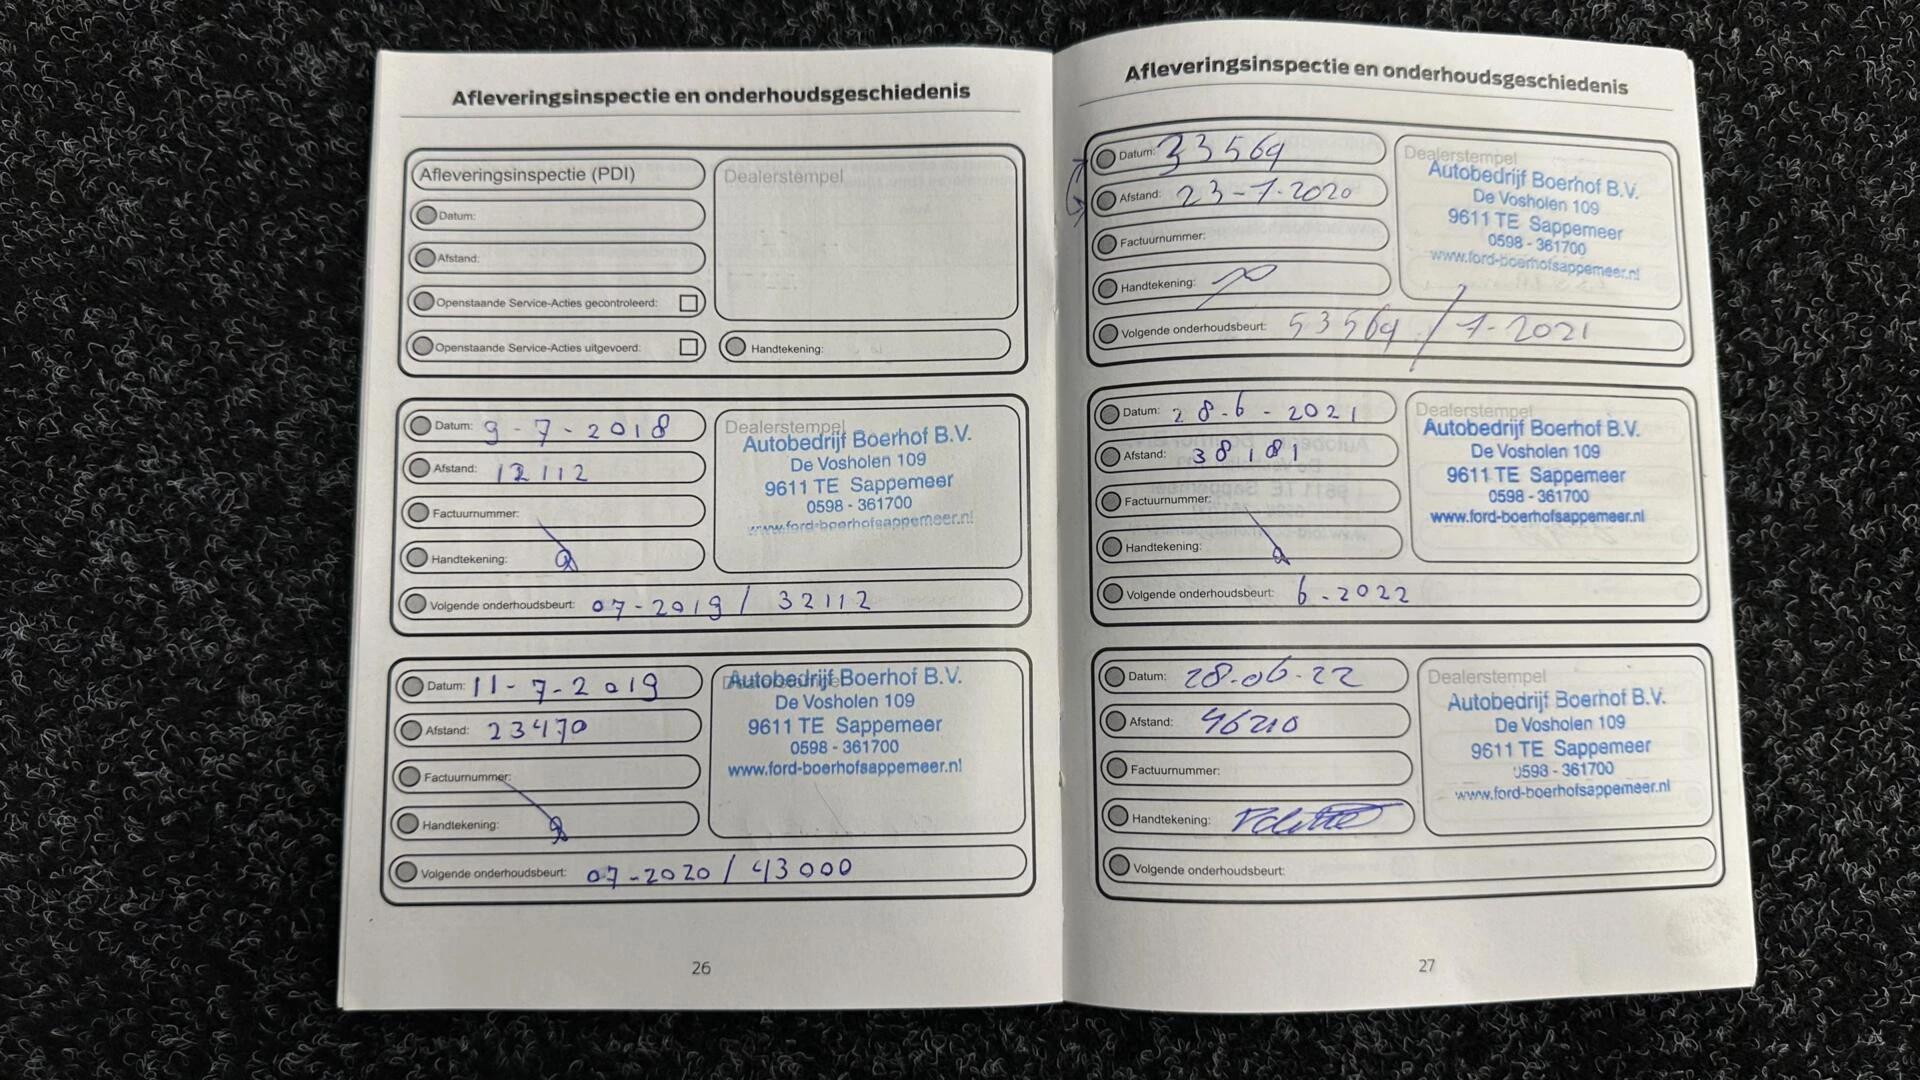 Afleveringsinspectie en onderhoudsgeschiedenis
Afleveringsinspectie (PDI)
Datum:
Afstand:
Openstaande Service-Acties gecontroleerd:
Openstaande Service-Acties uitgevoerd:
Dealerstempel
Handtekening:
Datum: 9-7-2018
Afstand: 12112
Factuurnummer:
Handtekening:
Dealerstempel
Autobedrijf Boerhof B.V.
De Vosholen 109
9611 TE Sappemeer
0598 - 361700
www.ford-boerhofsappemeer.nl
Volgende onderhoudsbeurt: 07-2019 / 32112
Datum: 11-7-2019
Afstand: 23470
Factuurnummer:
Handtekening:
Autobedrijf Boerhof B.V.
De Vosholen 109
9611 TE Sappemeer
0598 - 361700
www.ford-boerhofsappemeer.nl
Volgende onderhoudsbeurt: 07-2020 / 43000
26
Afleveringsinspectie en onderhoudsgeschiedenis
Datum: 33569
Afstand: 23-7-2020
Factuurnummer:
Handtekening:
Dealerstempel
Autobedrijf Boerhof B.V.
De Vosholen 109
9611 TE Sappemeer
0598 - 361700
www.ford-boerhofsappemeer.nl
Volgende onderhoudsbeurt: 53569 / 7-2021
Datum: 28-6-2021
Afstand: 38181
Factuurnummer:
Handtekening:
Dealerstempel
Autobedrijf Boerhof B.V.
De Vosholen 109
9611 TE Sappemeer
0598 - 361700
www.ford-boerhofsappemeer.nl
Volgende onderhoudsbeurt: 6-2022
Datum: 28-06-22
Afstand: 46210
Factuurnummer:
Handtekening:
Dealerstempel
Autobedrijf Boerhof B.V.
De Vosholen 109
9611 TE Sappemeer
0598 - 361700
www.ford-boerhofsappemeer.nl
Volgende onderhoudsbeurt:
27